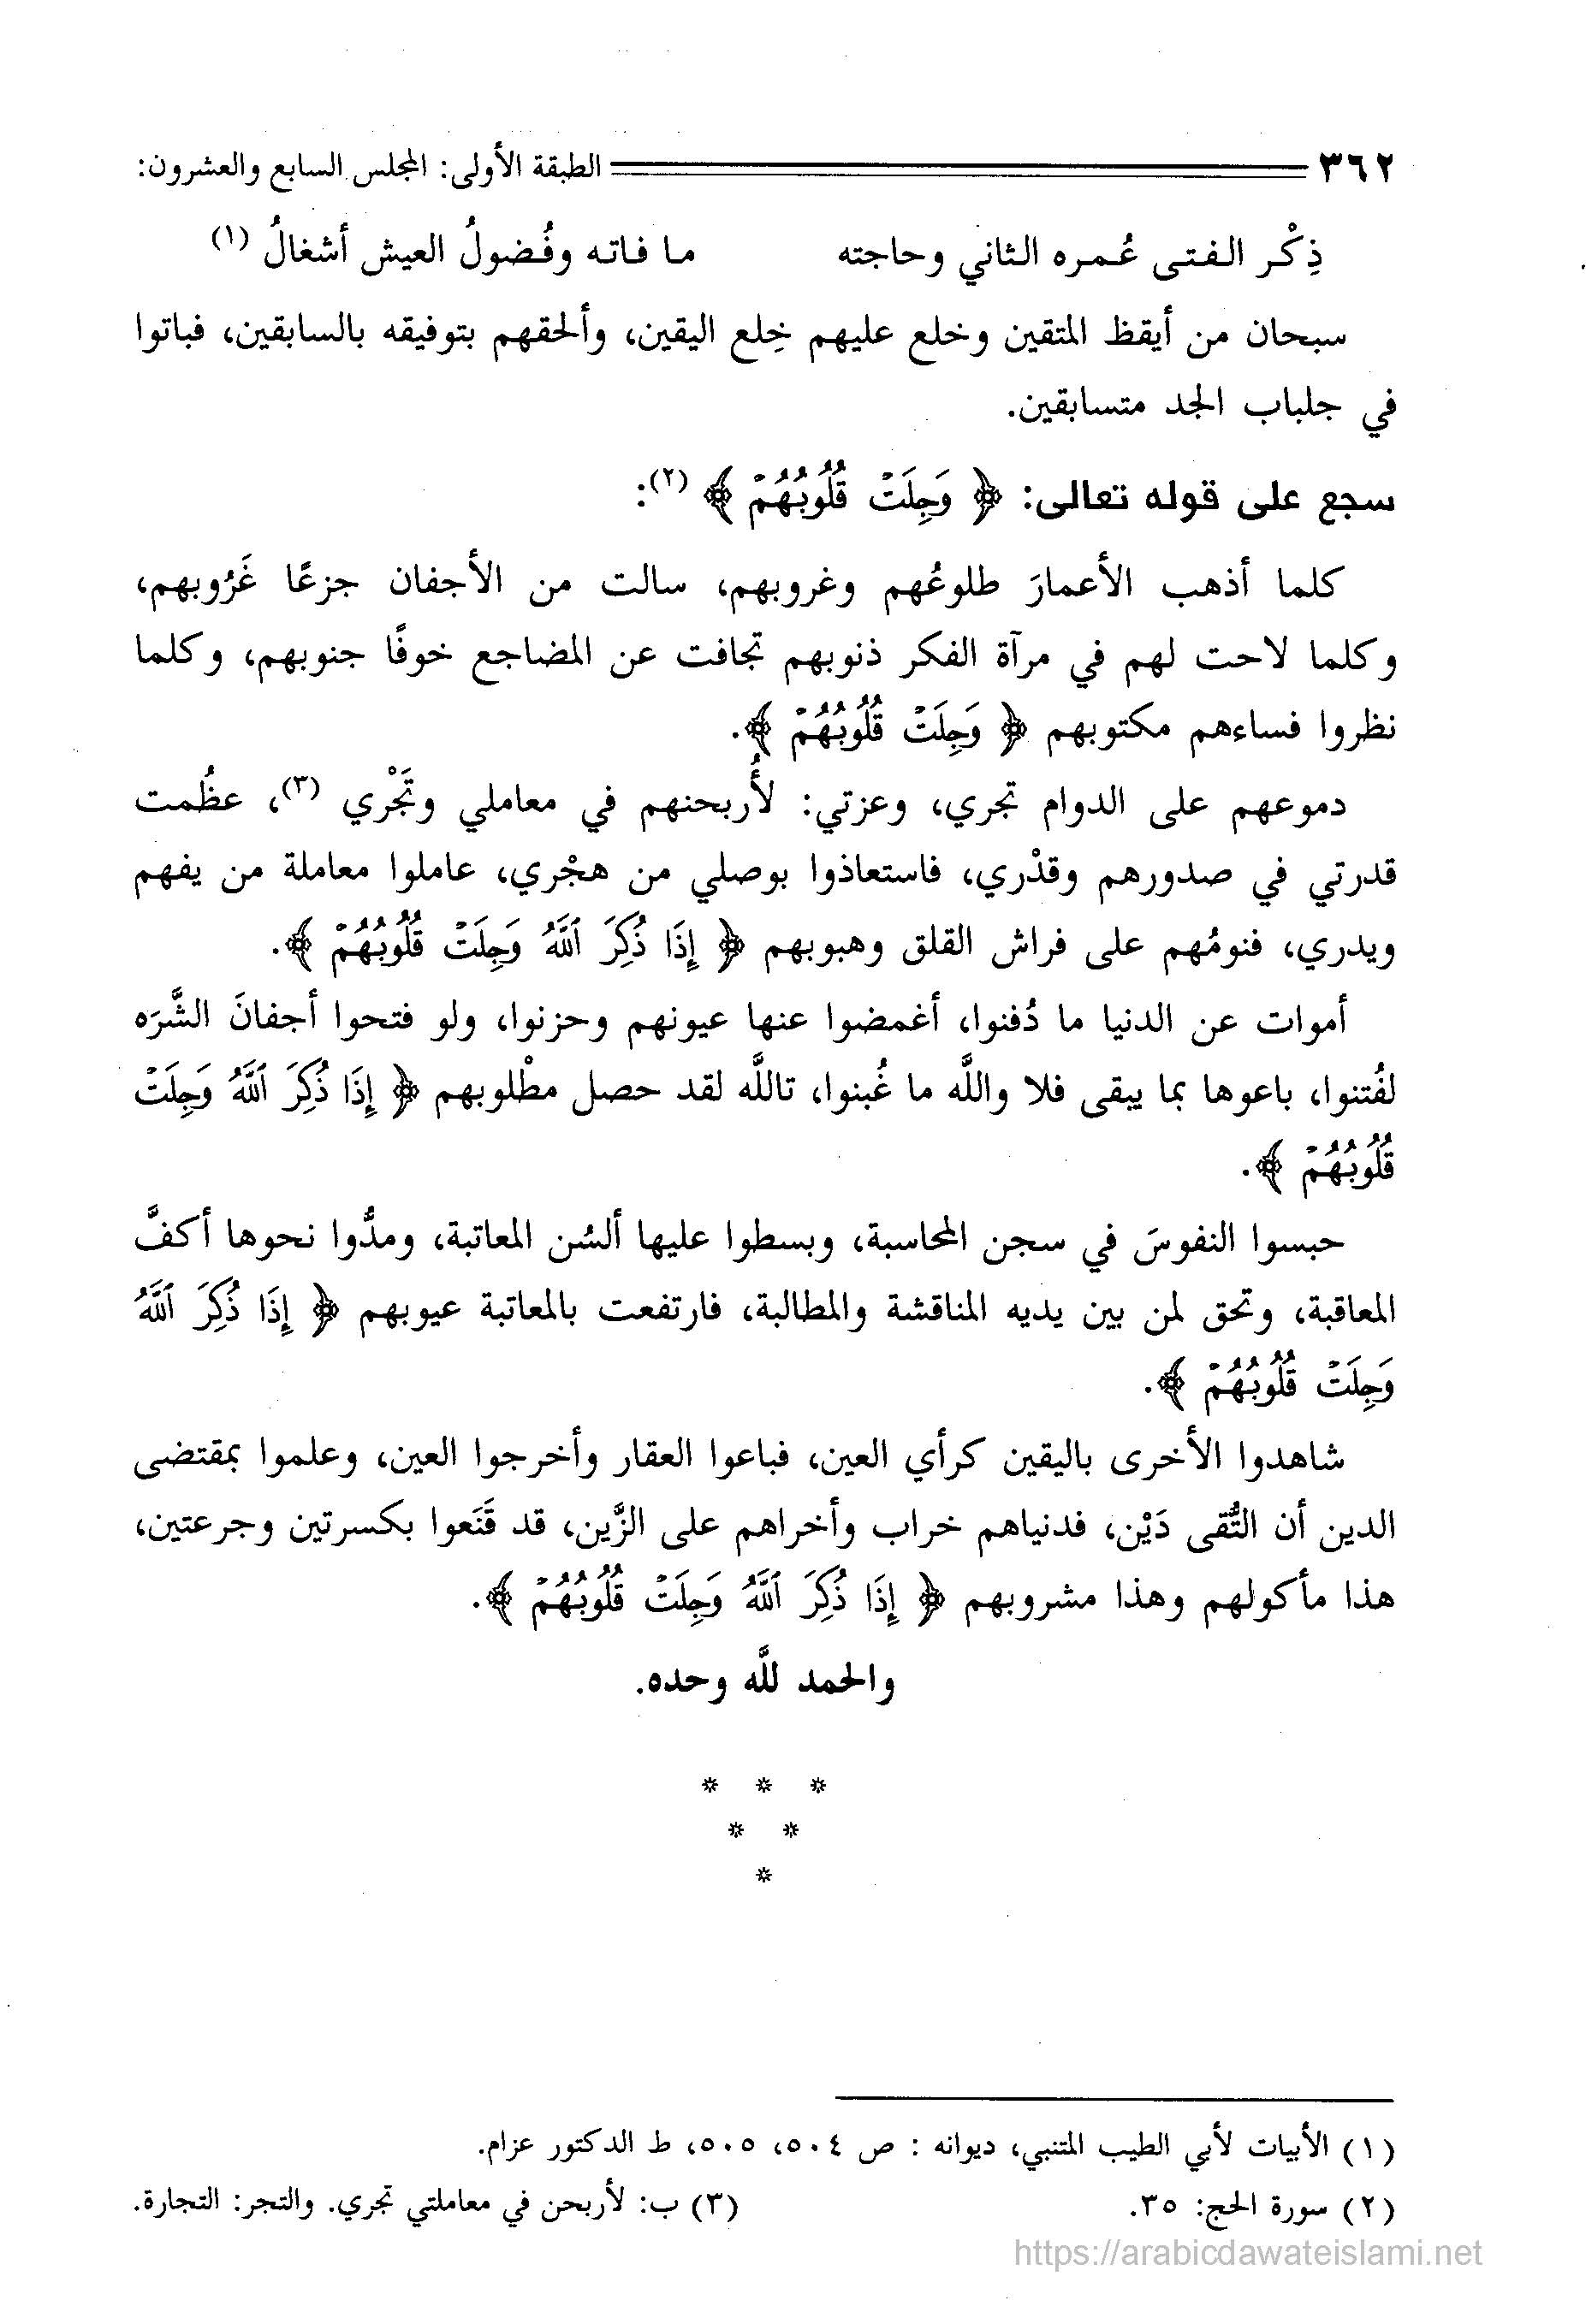 ٣٦٢ الطبقة الأولى: المجلس السابع والعشرون:
ذِكْر الفتى عُمره الثاني وحاجته ما فاته وفُضولُ العيش أشغالُ (١)
سبحان من أيقظ المتقين وخلع عليهم خِلع اليقين، وألحقهم بتوفيقه بالسابقين، فباتوا
في جلباب الجد متسابقين.
سجع على قوله تعالى: ﴿ وَجِلَتْ قُلُوبُهُمْ ﴾ (٢):
كلما أذهب الأعمارَ طلوعُهم وغروبهم، سالت من الأجفان جزعًا غَرُوبهم،
وكلما لاحت لهم في مرآة الفكر ذنوبهم تجافت عن المضاجع خوفًا جنوبهم، وكلما
نظروا فساءهم مكتوبهم ﴿ وَجِلَتْ قُلُوبُهُمْ ﴾.
دموعهم على الدوام تجري، وعزتي: لأُربحنهم في معاملي وتَجْري (٣)، عظُمت
قدرتي في صدورهم وقدْري، فاستعاذوا بوصلي من هجْري، عاملوا معاملة من يفهم
ويدري، فنومُهم على فراش القلق وهبوبهم ﴿ إِذَا ذُكِرَ ٱللَّهُ وَجِلَتْ قُلُوبُهُمْ ﴾.
أموات عن الدنيا ما دُفنوا، أغمضوا عنها عيونهم وحزنوا، ولو فتحوا أجفانَ الشَّرَه
لفُتنوا، باعوها بما يبقى فلا واللَّه ما غُبنوا، تاللَّه لقد حصل مطْلوبهم ﴿ إِذَا ذُكِرَ ٱللَّهُ وَجِلَتْ
قُلُوبُهُمْ ﴾.
حبسوا النفوسَ في سجن المحاسبة، وبسطوا عليها ألسُن المعاتبة، ومدُّوا نحوها أكفَّ
المعاقبة، وتحق لمن بين يديه المناقشة والمطالبة، فارتفعت بالمعاتبة عيوبهم ﴿ إِذَا ذُكِرَ ٱللَّهُ
وَجِلَتْ قُلُوبُهُمْ ﴾.
شاهدوا الأخرى باليقين كرأي العين، فباعوا العقار وأخرجوا العين، وعلموا بمقتضى
الدين أن التُّقى دَيْن، فدنياهم خراب وأخراهم على الزَّين، قد قَنَعوا بكسرتين وجرعتين،
هذا مأكولهم وهذا مشروبهم ﴿ إِذَا ذُكِرَ ٱللَّهُ وَجِلَتْ قُلُوبُهُمْ ﴾.
والحمد للَّه وحده.
* * *
* *
*
(١) الأبيات لأبي الطيب المتنبي، ديوانه : ص ٥٠٤، ٥٠٥، ط الدكتور عزام.
(٢) سورة الحج: ٣٥. (٣) ب: لأربحن في معاملتي تجري. والتجر: التجارة.
https://arabicdawateislami.net